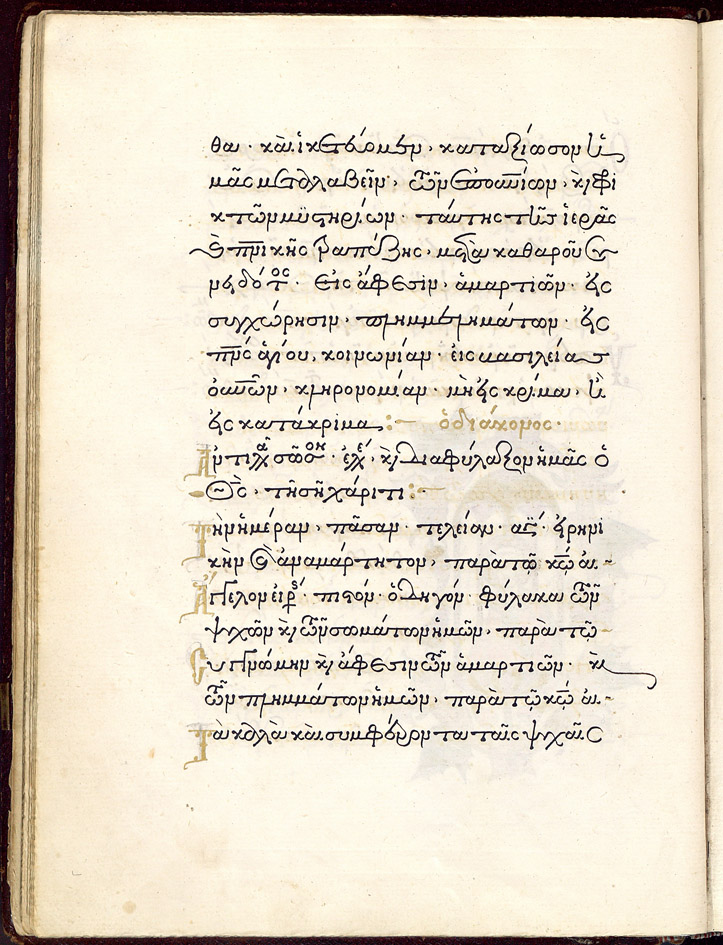 θα · καὶ ἱκετεύομεν, καταξίωσον ἡ
μᾶς μεταλαβεῖν, τῶν ἐπουνίων, κ φρι
κτῶν μυστηρίων · ταύτης τῆς ἱερᾶς
κ πνικῆς τραπέζης, μετὰ καθαροῦ συ
νειδότος · εἰς ἄφεσιν, ἁμαρτιῶν · εἰς
συγχώρησιν, πλημμελημάτων · εἰς
πνς ἁγίου, κοινωνίαν · εἰς βασιλείας
οὐνῶν, κληρονομίαν · μὴ εἰς κρίμα, ἢ
εἰς κατάκριμα :— ὁ διάκονος ·
Ἀντιλαβοῦ σῶσον · ἐλέησον, κ διαφύλαξον ἡμᾶς ὁ
Θς, τῇ σῇ χάριτι :—
Τὴν ἡμέραν, πᾶσαν · τελείαν · ἁγίαν · εἰρηνι
κὴν κ ἀναμάρτητον, παρὰ τῷ κῷ αἰ.
Ἄγγελον εἰρήνης · πιστόν · ὁδηγόν · φύλακα τῶν
ψυχῶν κ τῶν σωμάτων ἡμῶν, παρὰ τῷ
Συγγνώμην κ ἄφεσιν τῶν ἁμαρτιῶν · κ
τῶν πλημμάτων ἡμῶν, παρὰ τῷ κῷ αἰ.
Τὰ καλὰ καὶ συμφέροντα ταῖς ψυχαῖς